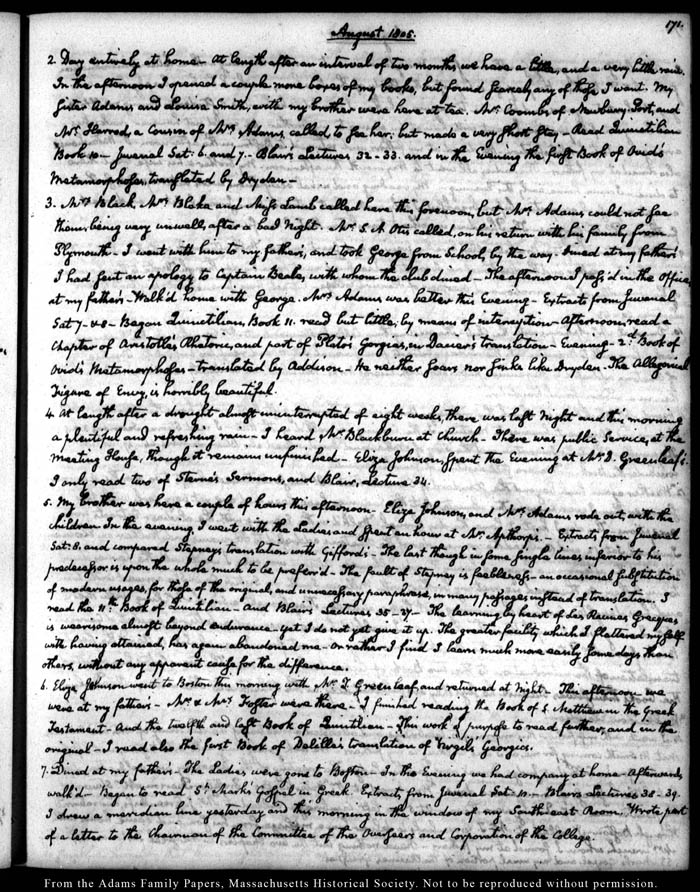 171.
August 1805.
2. Day entirely at home — At length after an interval of two months we have a little, and a very little rain.
In the afternoon I opened a couple more boxes of my books, but found scarcely any of those I want. My
Sister Adams and Louisa Smith, with my brother were here at tea. Mrs. Coombs of Newbury-Port, and
Mrs. Harrod, a Cousin of Mrs. Adams, called to see her; but made a very short stay — Read Quintilian
Book 10 — Juvenal Sat: 6. and 7. — Blair's Lectures 32 - 33. and in the Evening the first Book of Ovid's
Metamorphoses, translated by Dryden —
3. Mrs. Black, Mrs. Blake and Miss Lamb called here this forenoon, but Mrs. Adams could not see
them, being very unwell, after a bad Night. Mr. S. A. Otis called, on his return with his family from
Plymouth — I went with him to my father's, and took George from School, by the way. Dined at my father's
I had sent an apology to Captain Beale, with whom the club dined — The afternoon I pass'd in the Office,
at my father's — Walk'd home with George. Mrs. Adams was better this Evening — Extracts from Juvenal
Sat 7. & 8 — Began Quintilian, Book 11. read but little, by means of interruption — Afternoon, read a
Chapter of Aristotle's Rhetoric, and part of Plato's Gorgias, in Dacier's translation — Evening — 2d. Book of
Ovid's Metamorphoses — translated by Addison — He neither soars nor sinks like Dryden — The Allegorical
Figure of Envy, is horribly beautiful.
4. At length after a drought almost uninterrupted of eight weeks, there was last Night and this morning
a plentiful and refreshing rain — I heard Mr. Blackburn at Church — There was public Service, at the
meeting House, though it remains unfinished — Eliza Johnson spent the Evening at Mr. D. Greenleaf's.
I only read two of Sterne's Sermons, and Blair, Lecture 34.
5. My brother was here a couple of hours this afternoon — Eliza Johnson, and Mrs. Adams rode out, with the
children — In the evening I went with the Ladies and spent an hour at Mr. Apthorp's. — Extracts from Juvenal
Sat: 8. and compared Stepney's translation with Gifford's — The last though in some single lines inferior to his
predecessor is upon the whole much to be prefer'd — The fault of Stepney is feebleness — an occasional substitution
of modern usages, for those of the original, and unnecessary paraphrase, in many passages instead of translation. I
read the 11th. Book of Quintilian — And Blair's Lectures 35 - 37 — The learning by heart of Les Racines Grecques
is wearisome almost beyond endurance — yet I do not yet give it up. The greater facility which I flattered myself
with having attained, has again abandoned me — or rather I find I learn much more easily some days than
others, without any apparent cause for the difference.
6. Eliza Johnson went to Boston this morning with Mr. T. Greenleaf, and returned at Night — This afternoon we
were at my father's — Mr. & Mrs. Foster were there — I finished reading the Book of S. Matthew in the Greek
Testament — And the twelfth and last Book of Quintilian — This work I purpose to read further, and in the
original — I read also the first Book of Delille's translation of Virgil's Georgics.
7. Dined at my father's — The Ladies were gone to Boston — In the Evening we had company at home — Afterwards,
walk'd — Began to read St. Mark's Gospel in Greek. Extracts from Juvenal Sat: 10. — Blair's Lectures 38 - 39.
I drew a meridian line yesterday and this morning in the window of my South-east Room. Wrote part
of a letter to the Chairman of the Committee of the Overseers and Corporation of the College.
From the Adams Family Papers, Massachusetts Historical Society. Not to be reproduced without permission.